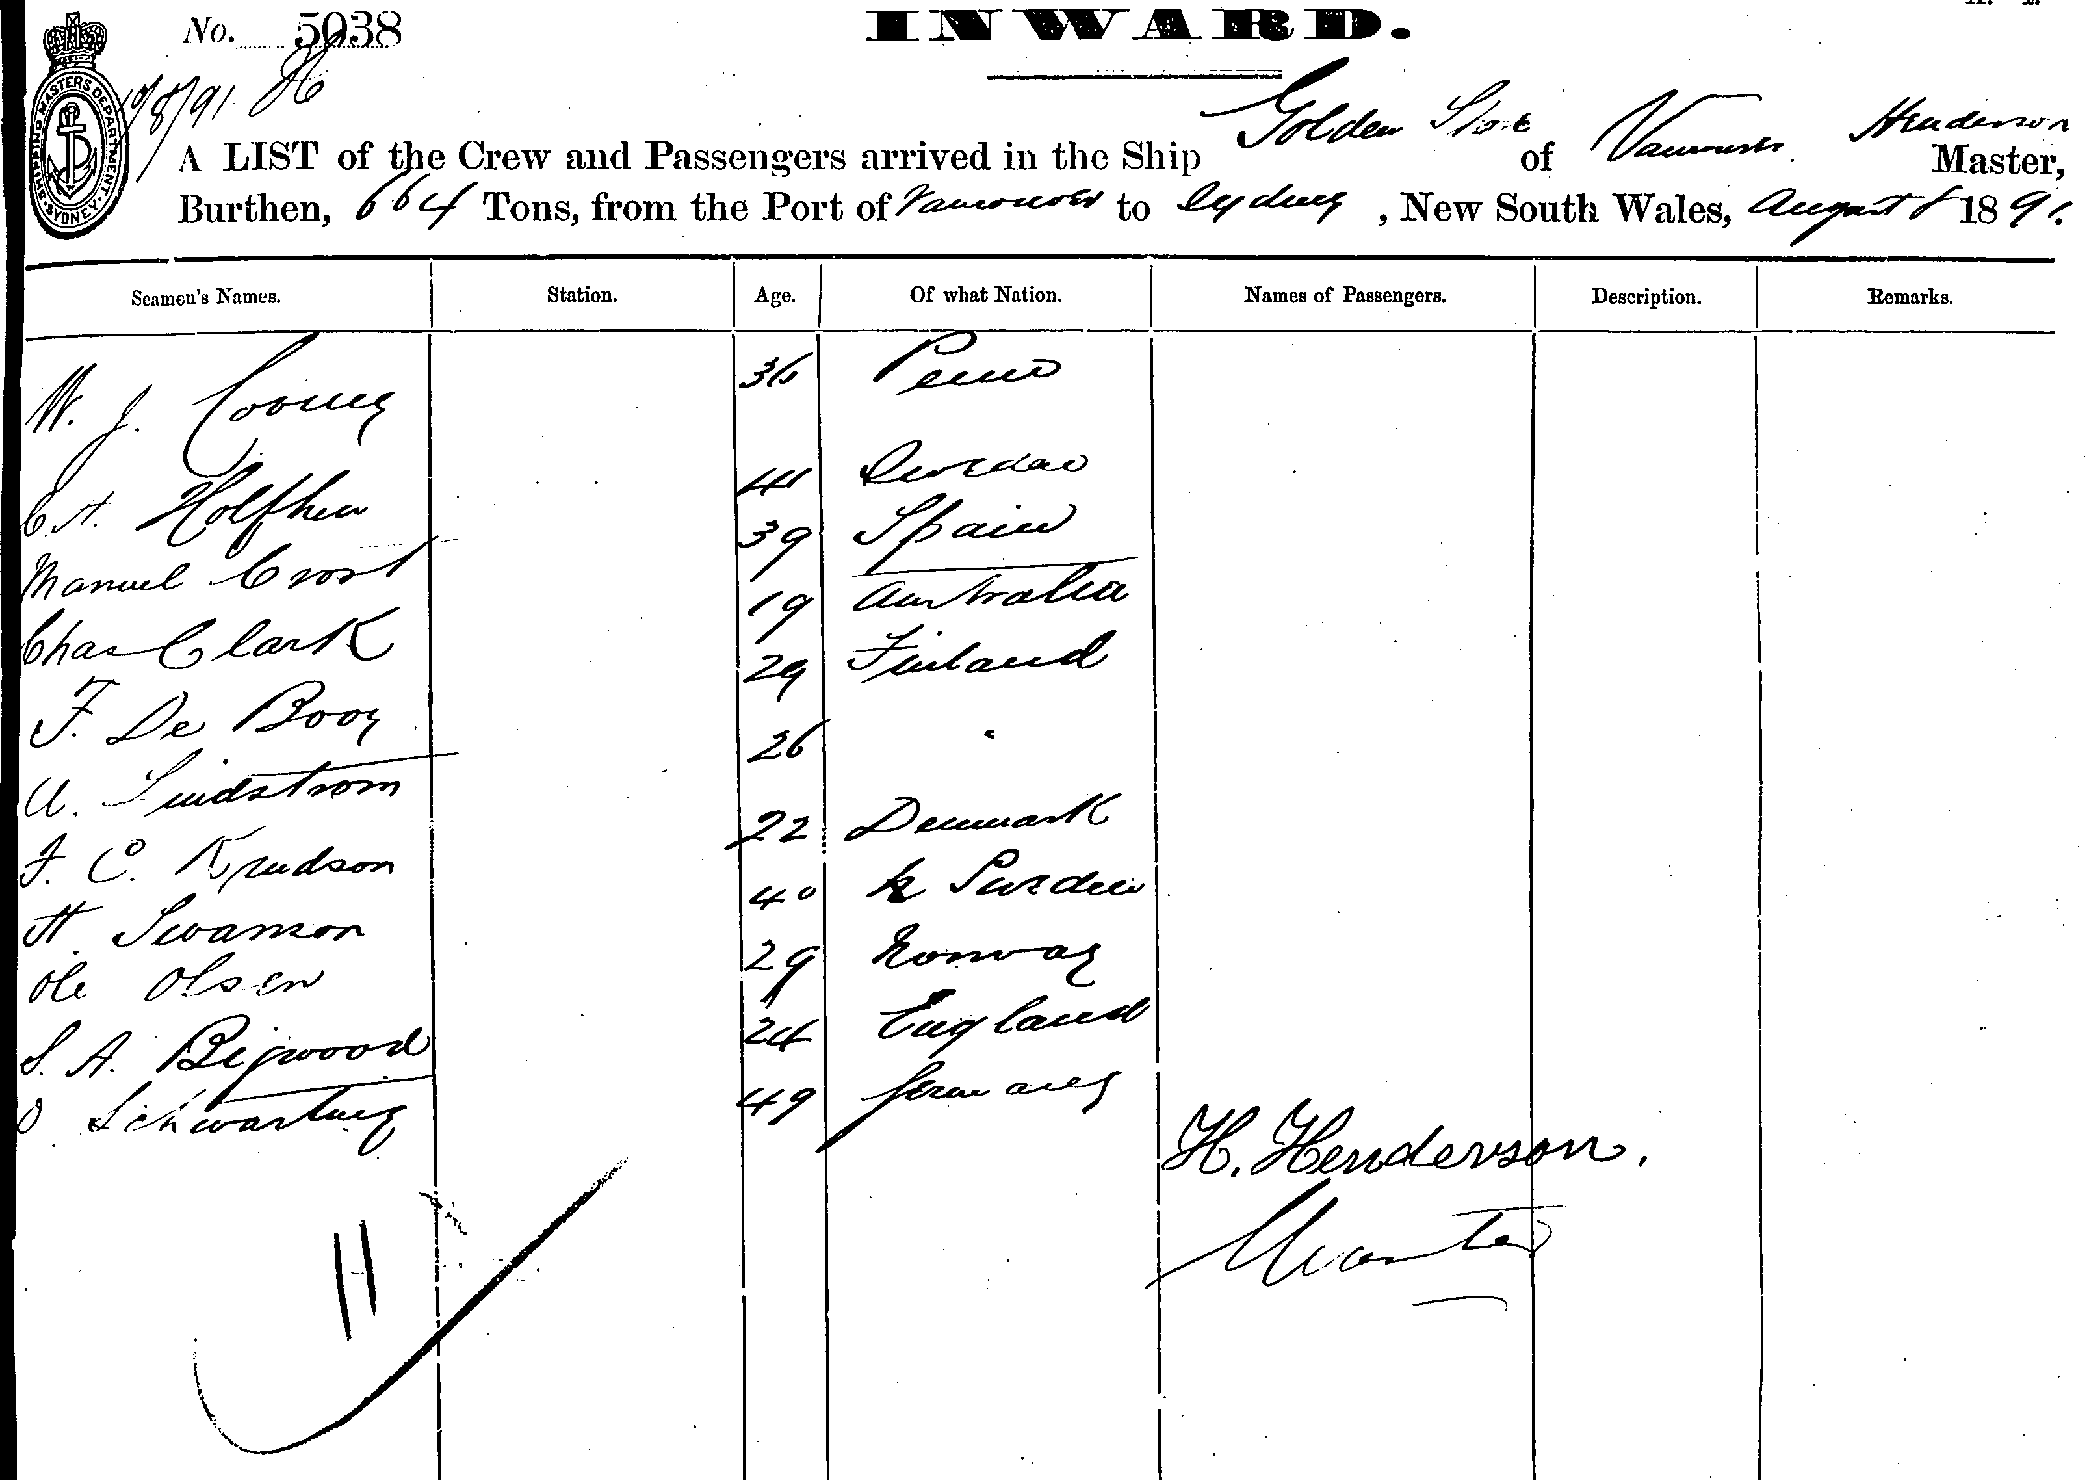 No. 5038
INWARD.
SHIPPING MASTERS DEPARTMENT SYDNEY
/8/91
A LIST of the Crew and Passengers arrived in the Ship Golden of Henderson Master,
Burthen, 664 Tons, from the Port of Vancouver to Sydney, New South Wales, August 8 1891.
Seamen's Names. Station. Age. Of what Nation. Names of Passengers. Description. Remarks.
W. J. 36
C. A. 41
Manuel 39 Spain
Chas Clark 19 Australia
F. De Booy 29 Finland
A. Lindstrom 26 "
F. C. Knudson 22 Denmark
H. Swanson 40
Ole Olsen 29 Norway
S. A. Bigwood 24 England
O 49 Germany
H. Henderson.
Master
11